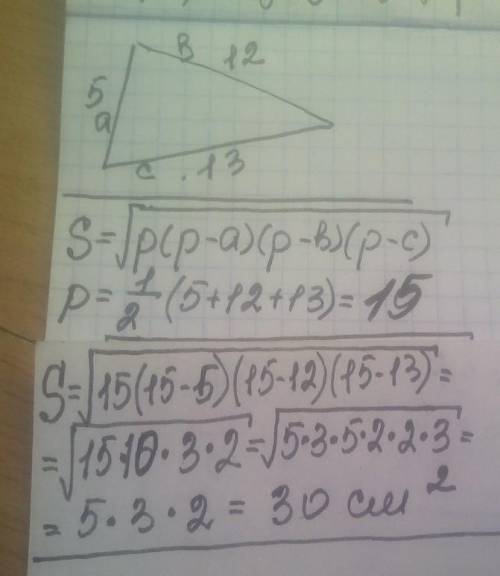 в 12
5
a
c . 13
S=√p(p-a)(p-в)(p-c)
p=1/2(5+12+13)=15
S=√15(15-5)(15-12)(15-13)=
=√15·10·3·2=√5·3·5·2·2·3=
=5·3·2=30 см²